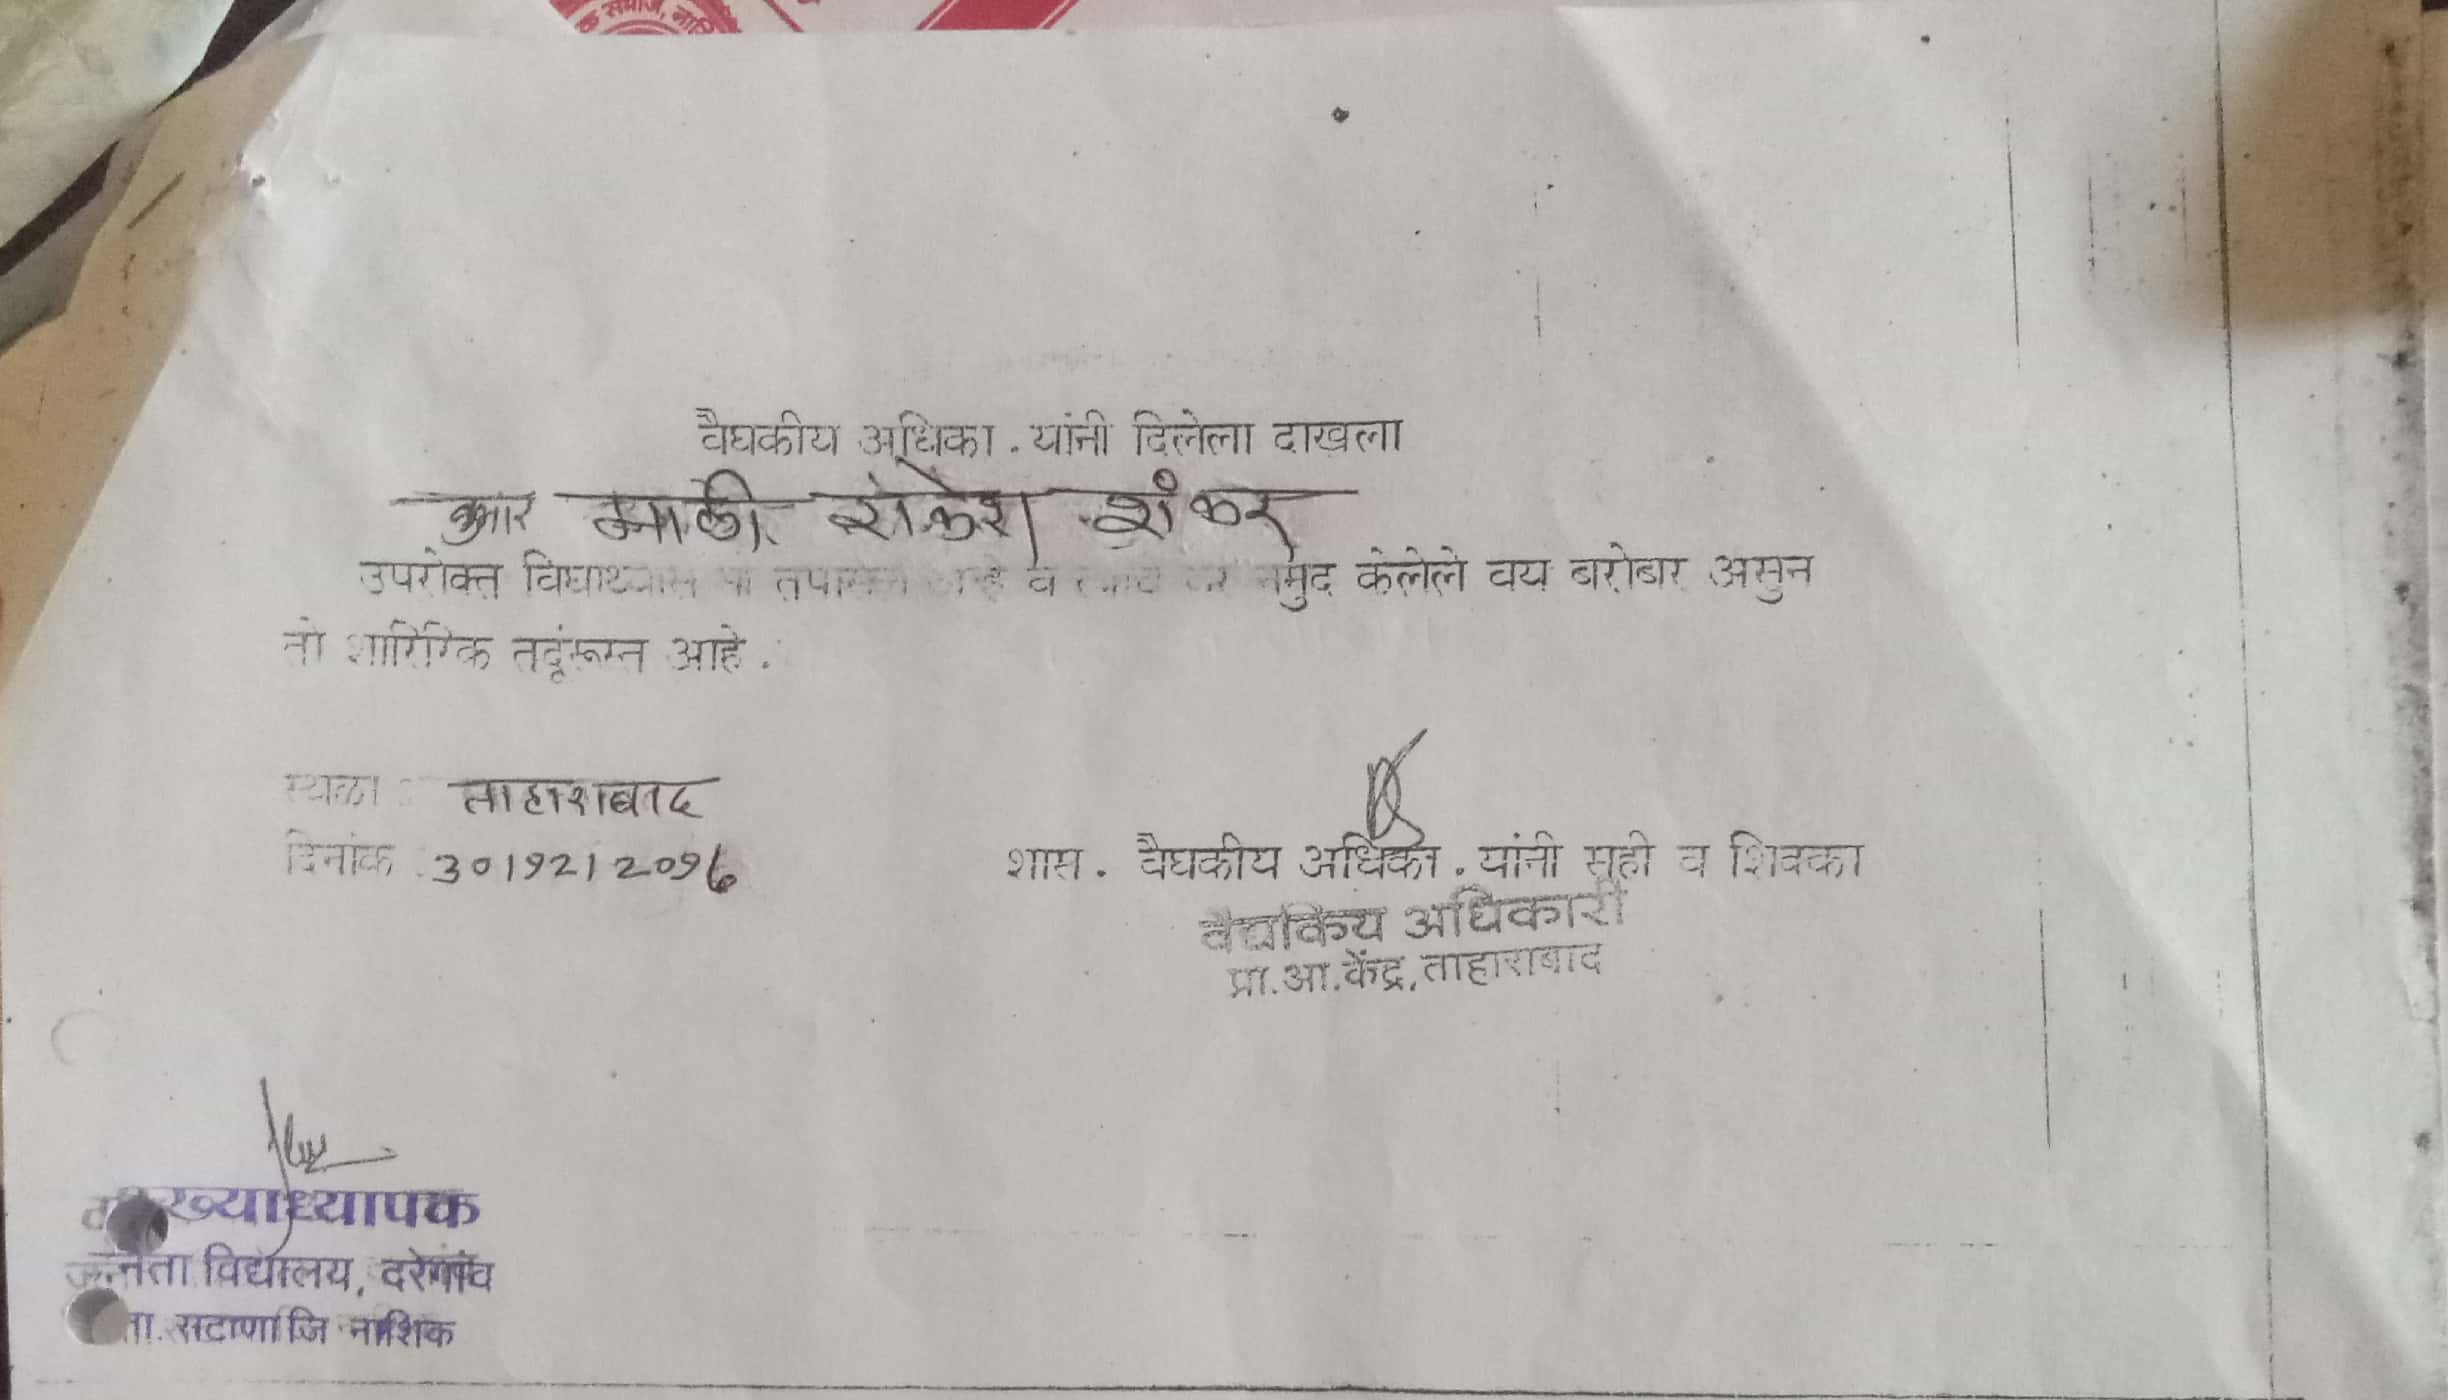 क समाज, नाशि
वैघकीय अधिका . यांनी दिलेला दाखला
कुमार माळी राकेश शंकर
उपरोक्त व नमुद केलेले वय बरोबर असुन
तो शारिरिक तदूंरूस्त आहे .
स्थळ : ताहाराबाद
दिनांक : 30/१२/20१६
शास . वैघकीय अधिका . यांनी सही व शिक्का
वैद्यकिय अधिकारी
प्रा.आ.केंद्र,ताहाराबाद
मुख्याध्यापक
जनता विद्यालय, दरेगांव
ता. सटाणा जि नाशिक